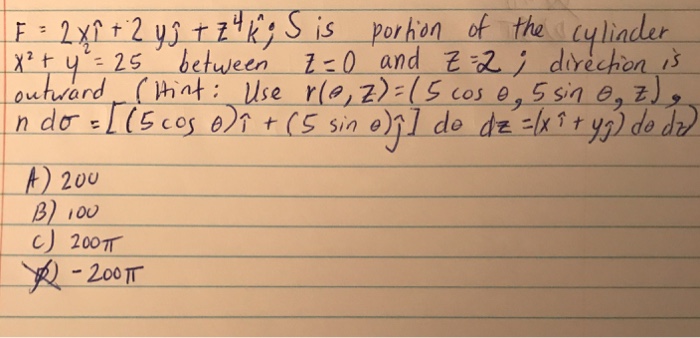 F = 2xî + 2 yĵ + z⁴k̂; S is portion of the cylinder
x² + y² = 25 between z=0 and z=2; direction is
outward (Hint: Use r(θ, z)=(5 cos θ, 5 sin θ, z),
n dσ = [(5 cos θ)î + (5 sin θ)ĵ] dθ dz =(x î + yĵ) dθ dz)
A) 200
B) 100
C) 200π
D) - 200π